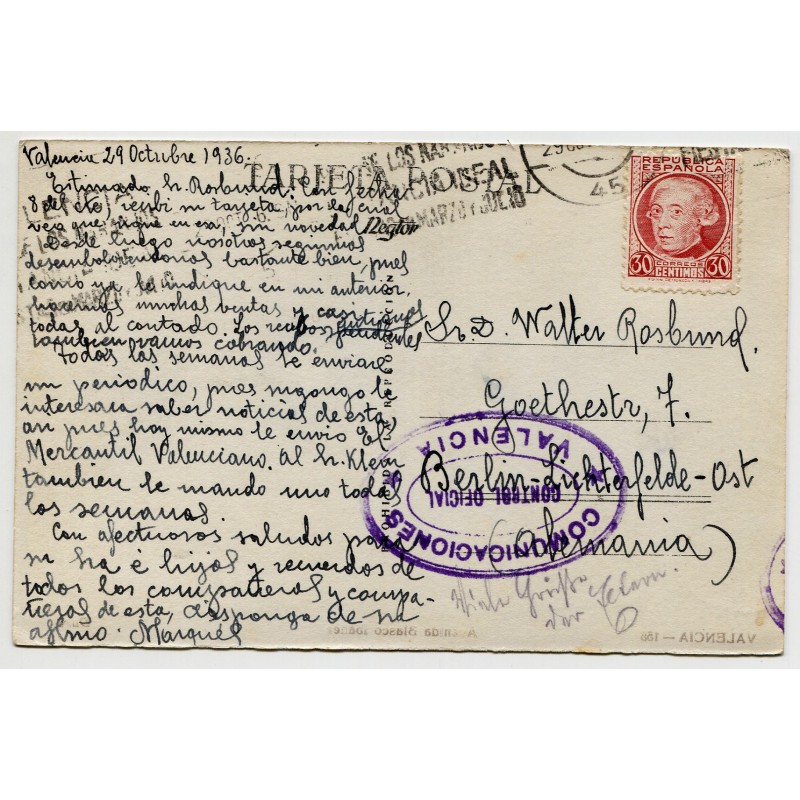 Valencia 29 Octubre 1936.
TARJETA POSTAL
Estimado Sr. Rosbund: Con fecha
8 del cte, recibi su tarjeta, por la cual
veo que sigue en esa, sin novedad.
Desde luego nosotros seguimos
desembolviendonos bastante bien, pues
como ya le indique en mi anterior,
hacemos muchas ventas y casi
todas al contado. Los recibos pendientes
tambien vamos cobrando.
Todas las semanas le enviare
un periodico, pues supongo le
interesara saber noticias de esta,
asi pues hoy mismo le envio El
Mercantil Valenciano. Al Sr. Klein
tambien le mando uno todas
las semanas.
Con afectuosos saludos para
su Sra é hijos y recuerdos de
todos los compañeros y compa-
ñeras de esta, disponga de su
affmo. Marqués
REPUBLICA
ESPAÑOLA
CORREOS
30 CENTIMOS 30
29 OC
45
DE LOS NARANJOS
MARZO Y JULIO
Sr. D. Walter Rosbund.
Goethestr, 7.
Berlin-Lichterfelde-Ost
(Alemania)
COMUNICACIONES
CONTROL OFICIAL
VALENCIA
Viele Grüsse
PROHIBIDA LA REPRODUCCION
Avenida Blasco Ibáñez
VALENCIA — 156